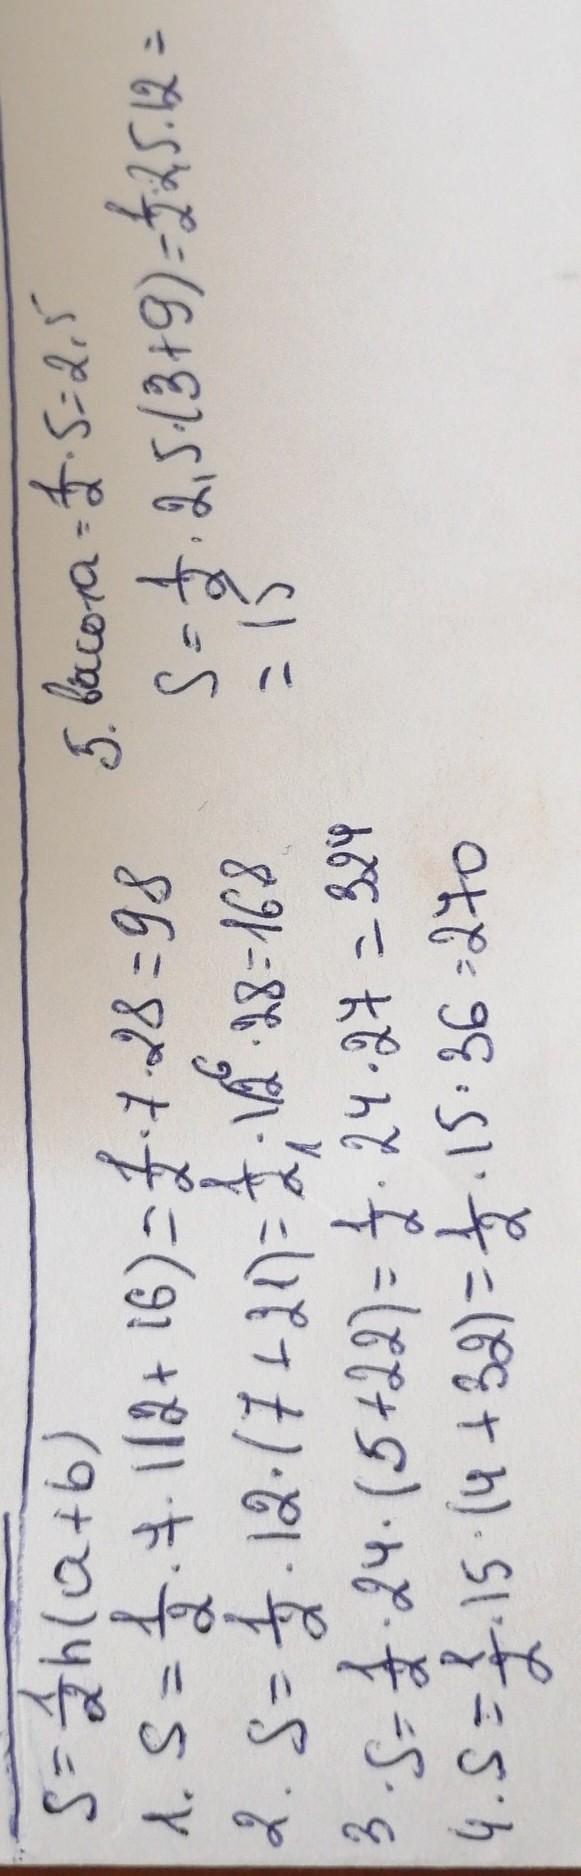 S = 1/2 h(a+b)
1. S = 1/2 · 7 · (12 + 16) = 1/2 · 7 · 28 = 98
2. S = 1/2 · 12 · (7 + 21) = 1/2 1 · 12 6 · 28 = 168
3. S = 1/2 · 24 · (5 + 22) = 1/2 · 24 · 27 = 324
4. S = 1/2 · 15 · (4 + 32) = 1/2 · 15 · 36 = 270
5. высота = 1/2 · 5 = 2,5
S = 1/2 · 2,5 · (3+9) = 1/2 · 2,5 · 12 =
= 15